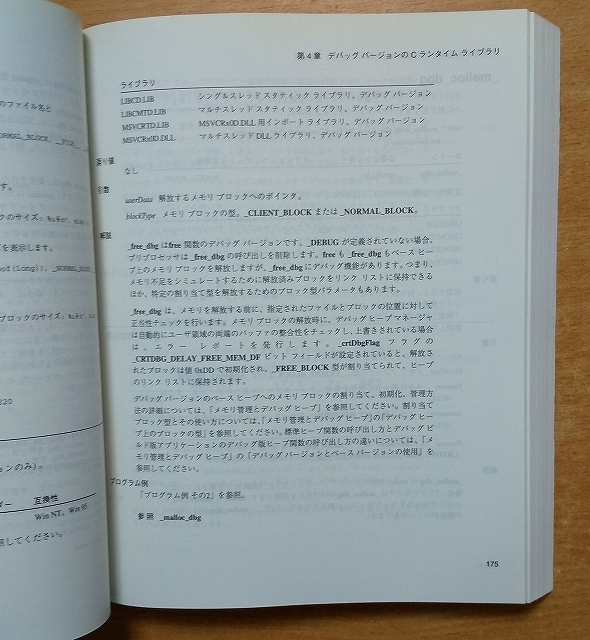 のファイル名と
NORMAL_BLOCK, __FILE__,
す。
ックのサイズ: %u¥n", size
を表示します。
of(long)), _NORMAL_BLO
ブロックのサイズ: %u¥n",
320
ョンのみ)。
ダー 互換性
Win NT、Win 95
照してください。
第4章 デバッグ バージョンの C ランタイム ライブラリ
ライブラリ
LIBCD.LIB シングルスレッド スタティック ライブラリ、デバッグ バージョン
LIBCMTD.LIB マルチスレッド スタティック ライブラリ、デバッグ バージョン
MSVCRTD.LIB MSVCRx0D.DLL 用インポート ライブラリ、デバッグ バージョン
MSVCRx0D.DLL マルチスレッド DLL ライブラリ、デバッグ バージョン
戻り値
なし
引数
userData 解放するメモリ ブロックへのポインタ。
blockType メモリ ブロックの型。_CLIENT_BLOCK または _NORMAL_BLOCK。
解説
_free_dbg は free 関数のデバッグ バージョンです。_DEBUG が定義されていない場合、
プリプロセッサは _free_dbg の呼び出しを削除します。free も _free_dbg もベース ヒー
プ上のメモリ ブロックを解放しますが、_free_dbg にデバッグ機能があります。つまり、
メモリ不足をシミュレートするために解放済みブロックをリンク リストに保持できる
ほか、特定の割り当て型を解放するためのブロック型パラメータもあります。
_free_dbg は、メモリを解放する前に、指定されたファイルとブロックの位置に対して
正当性チェックを行います。メモリ ブロックの解放時に、デバッグ ヒープ マネージャ
は自動的にユーザ領域の両端のバッファの整合性をチェックし、上書きされている場合
は、エラー レポートを発行します。_crtDbgFlag フラグの
_CRTDBG_DELAY_FREE_MEM_DF ビット フィールドが設定されていると、解放さ
れたブロックは値 0xDD で初期化され、_FREE_BLOCK 型が割り当てられて、ヒープ
のリンク リストに保持されます。
デバッグ バージョンのベース ヒープへのメモリ ブロックの割り当て、初期化、管理方
法の詳細については、「メモリ管理とデバッグ ヒープ」を参照してください。割り当て
ブロック型とその使い方については、「メモリ管理とデバッグ ヒープ」の「デバッグ ヒー
プ上のブロックの型」を参照してください。標準ヒープ関数の呼び出し方とデバッグ ビ
ルド版アプリケーションのデバッグ版ヒープ関数の呼び出し方の違いについては、「メ
モリ管理とデバッグ ヒープ」の「デバッグ バージョンとベース バージョンの使用」を
参照してください。
プログラム例
「プログラム例 その2」を参照。
参照 _malloc_dbg
175